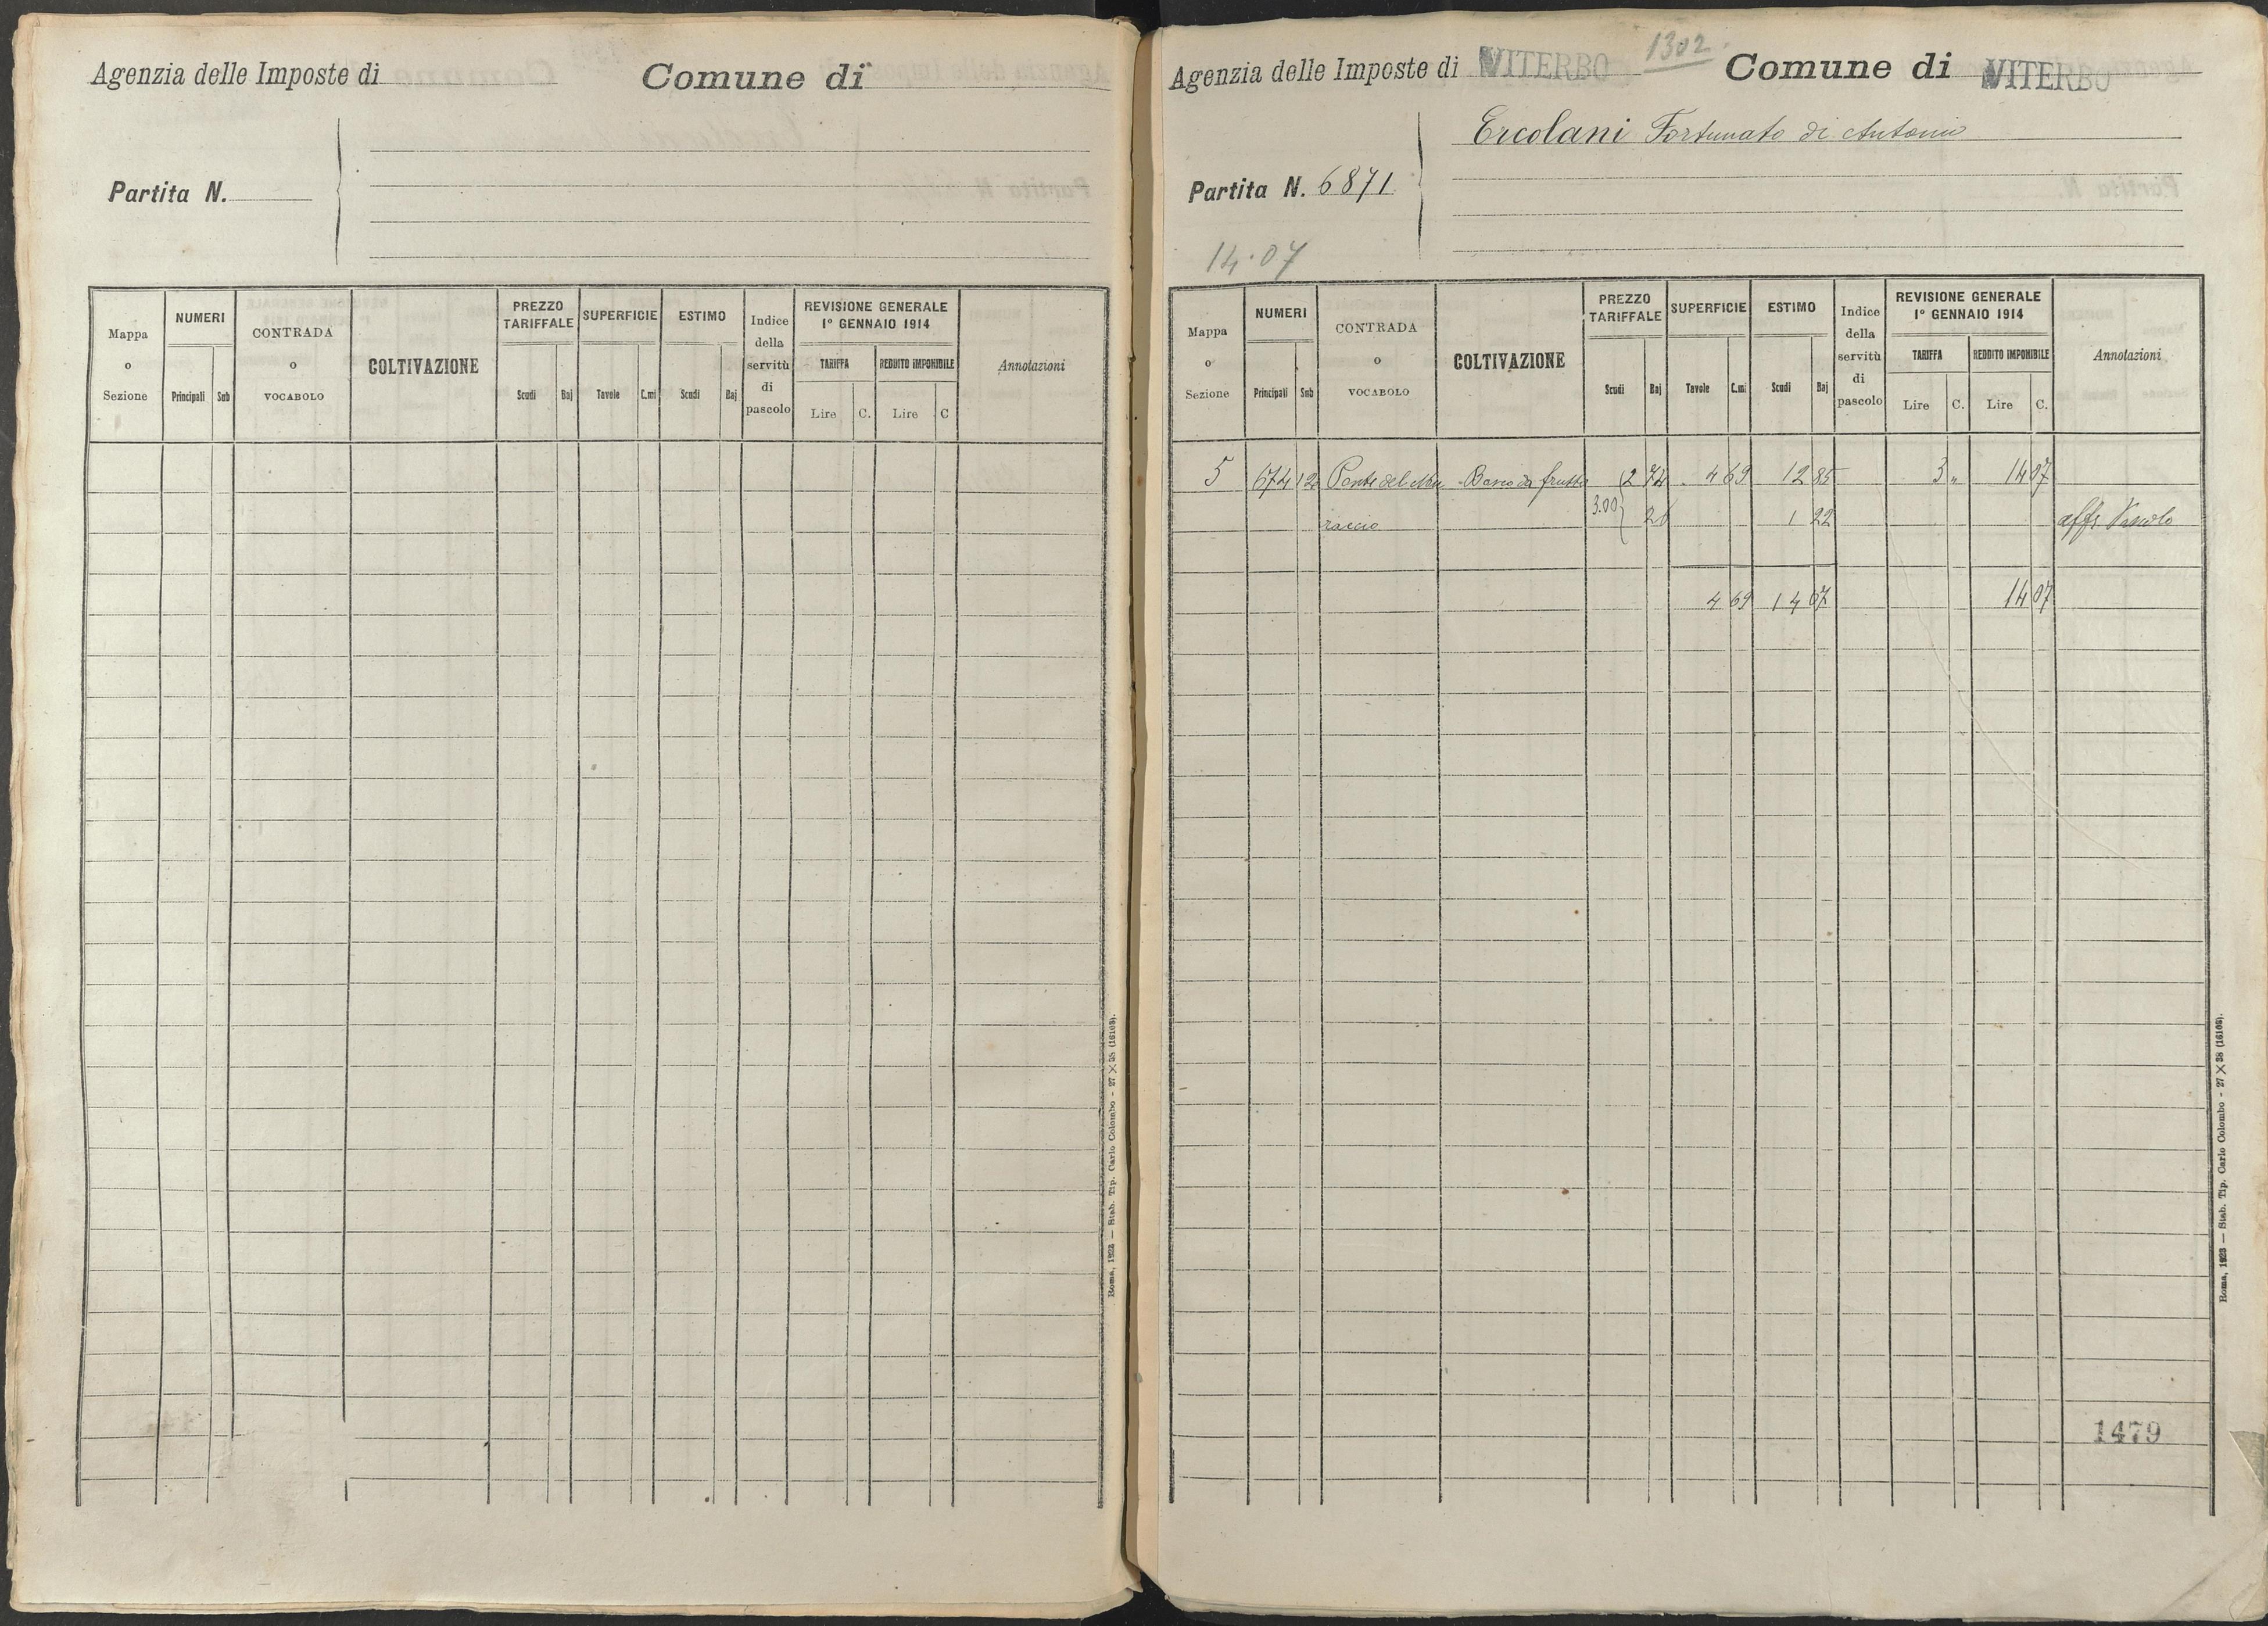 Agenzia delle Imposte di
Comune di
Partita N.
Mappa o Sezione
NUMERI
Principali Sub
CONTRADA o VOCABOLO
COLTIVAZIONE
PREZZO TARIFFALE
Scudi Baj
SUPERFICIE
Tavole C.mi
ESTIMO
Scudi Baj
Indice della servitù di pascolo
REVISIONE GENERALE
1° GENNAIO 1914
TARIFFA
Lire C.
REDDITO IMPONIBILE
Lire C
Annotazioni
Roma, 1923 — Stab. Tip. Carlo Colombo - 27 X 38 (16103).
1302
Agenzia delle Imposte di VITERBO
Comune di VITERBO
Ercolani Fortunato di Antonio
Partita N. 6871
14.07
Mappa o Sezione
NUMERI
Principali Sub
CONTRADA o VOCABOLO
COLTIVAZIONE
PREZZO TARIFFALE
Scudi Baj
SUPERFICIE
Tavole C.mi
ESTIMO
Scudi Baj
Indice della servitù di pascolo
REVISIONE GENERALE
1° GENNAIO 1914
TARIFFA
Lire C.
REDDITO IMPONIBILE
Lire C.
Annotazioni
5 674 12 Ponte del frutta 2 74 4 69 12 85 3 " 14 07
raccio 3.00 26 1 22
4 69 14 07 14 07
1479
Roma, 1923 — Stab. Tip. Carlo Colombo - 27 X 38 (16103).